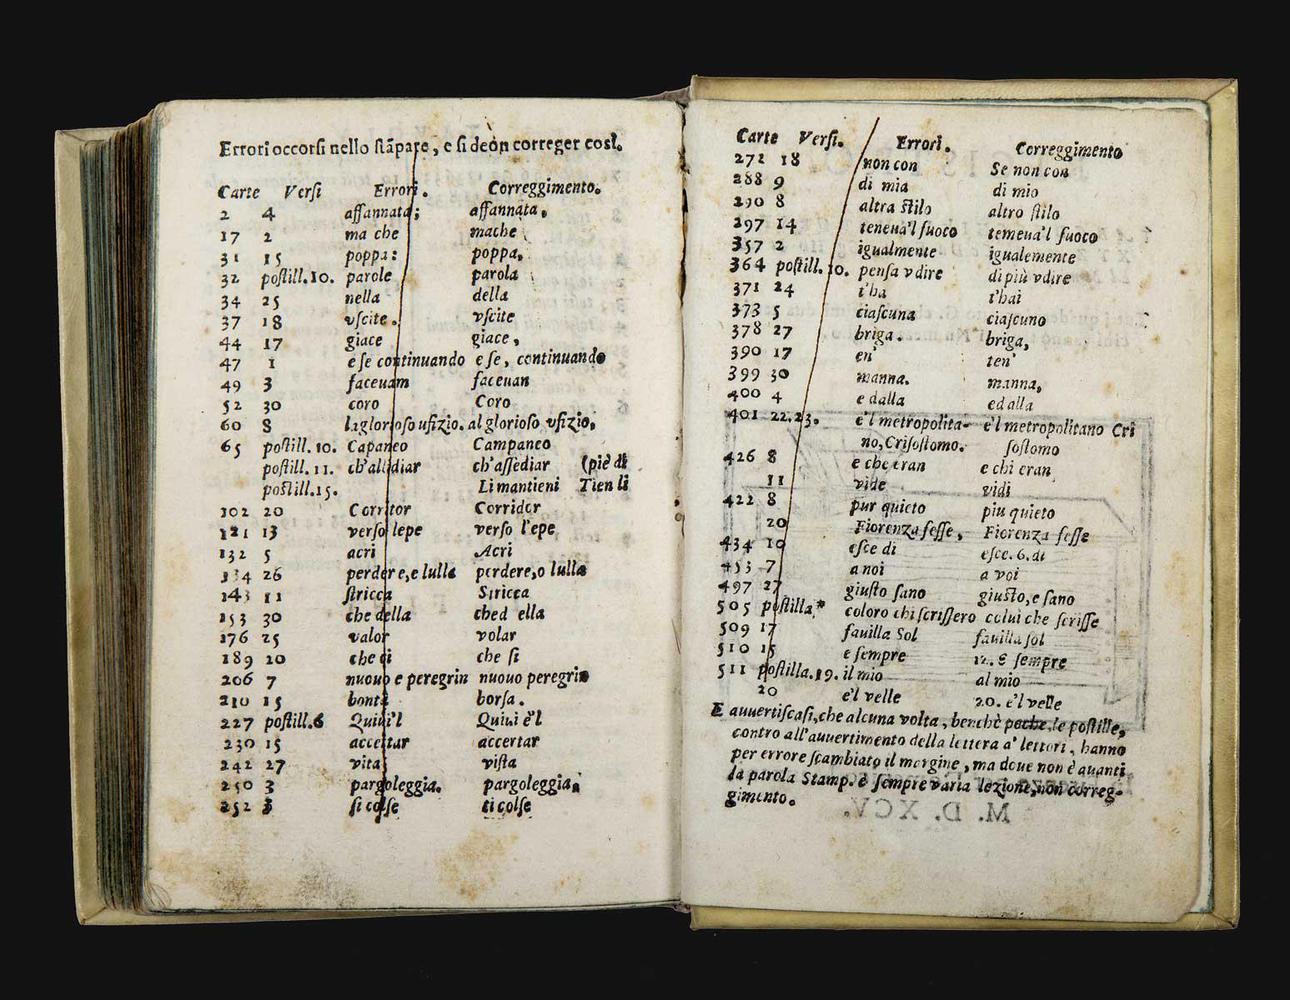 Errori occorsi nello stãpare, e si deõn correger così.
Carte Versi Errori. Correggimento.
2 4 affannata; affannata,
17 2 ma che mache
31 15 poppa: poppa,
32 postill.10. parole parola
34 25 nella della
37 18 vscite. vscite
44 17 giace giace,
47 1 e se continuando e se, continuando
49 3 faceuam faceuan
52 30 coro Coro
60 8 la glorioso ufizio. al glorioso vfizio,
65 postill. 10. Capaneo Campaneo
postill. 11. ch'assediar ch'assediar (piè di
postill.15. Li mantieni Tien li
102 20 Corritor Corridor
121 13 verso lepe verso l'epe
132 5 acri Acri
134 26 perdere, e lulla perdere, o lulla
143 11 stricca Stricca
153 30 che della ched ella
176 25 valor volar
189 20 che ci che si
206 7 nuouo e peregrin nuouo peregrin
210 15 bontà borsa.
227 postill.6 Quiui'l Quiui è'l
230 15 accettar accertar
242 27 vita vista
250 3 pargoleggia. pargoleggia,
252 3 si colse ti colse
Carte Versi. Errori. Correggimento
272 18 non con Se non con
288 9 di mia di mio
290 8 altra stilo altro stilo
297 14 teneua'l fuoco temeua'l fuoco
357 2 igualmente igualemente
364 postill. 10. pensa vdire di più vdire
371 24 t'ha t'hai
373 5 ciascuna ciascuno
378 27 briga. briga,
390 17 en' ten'
399 30 manna. manna,
400 4 e dalla ed alla
401 22.23. e'l metropolita- e'l metropolitano Cri
no, Crisostomo. sostomo
426 8 e che eran e chi eran
11 vide vidi
422 8 pur quieto piu quieto
20 Fiorenza fesse, Fiorenza fesse
434 10 esce di esce. 6. di
453 7 a noi a voi
497 27 giusto sano giusto, e sano
505 postilla* coloro chi scrissero colui che scrisse
509 17 fauilla Sol fauilla sol
510 15 e sempre 12. E sempre
511 postilla. 19. il mio al mio
20 e'l velle 20. e'l velle
E auuertiscasi, che alcuna volta, benchè poche, le postille,
contro all'auuertimento della lettera a' lettori, hanno
per errore scambiato il margine, ma doue non è auanti
la parola Stamp. è sempre varia lezione, non correg-
gimento.
M. D. XCV.